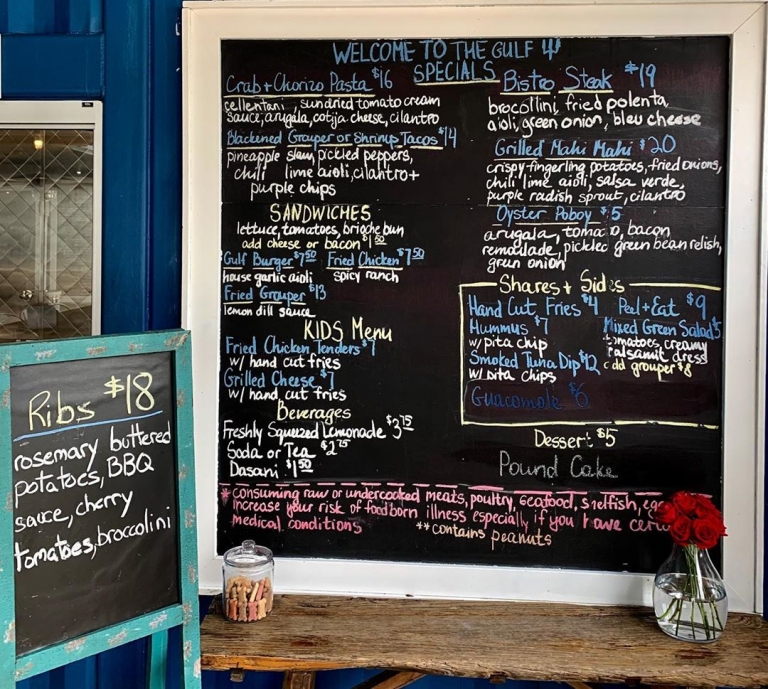 WELCOME TO THE GULF
SPECIALS
Crab + Chorizo Pasta $16
cellentani, sundried tomato cream
sauce, arugala, cotija cheese, cilantro
Blackened Grouper or Shrimp Tacos $14
pineapple slaw, pickled peppers,
chili lime aioli, cilantro +
purple chips
SANDWICHES
lettuce, tomatoes, brioche bun
add cheese or bacon $1.50
Gulf Burger $7.50 Fried Chicken $7.50
house garlic aioli spicy ranch
Fried Grouper $13
lemon dill sauce
KIDS Menu
Fried Chicken Tenders $7
w/ hand cut fries
Grilled Cheese $7
w/ hand cut fries
Beverages
Freshly Squeezed Lemonade $3.75
Soda or Tea $2.75
Dasani $1.50
Bistro Steak $19
brocollini, fried polenta,
aioli, green onion, bleu cheese
Grilled Mahi Mahi $20
crispy fingerling potatoes, fried onions,
chili lime aioli, salsa verde,
purple radish sprout, cilantro
Oyster Poboy $5
arugala, tomato, bacon
remoulade, pickled green bean relish,
green onion
Shares + Sides
Hand Cut Fries $4 Peel + Eat $9
Hummus $7 Mixed Green Salad $5
w/ pita chip tomatoes, creamy
balsamic dress
Smoked Tuna Dip $12 add grouper $8
w/ pita chips
Guacamole $6
Dessert $5
Pound Cake
* consuming raw or undercooked meats, poultry, seafood, shelfish,
increase your risk of foodborn illness especially if you have
medical conditions
** contains peanuts
Ribs $18
rosemary buttered
potatoes, BBQ
sauce, cherry
tomatoes, broccolini